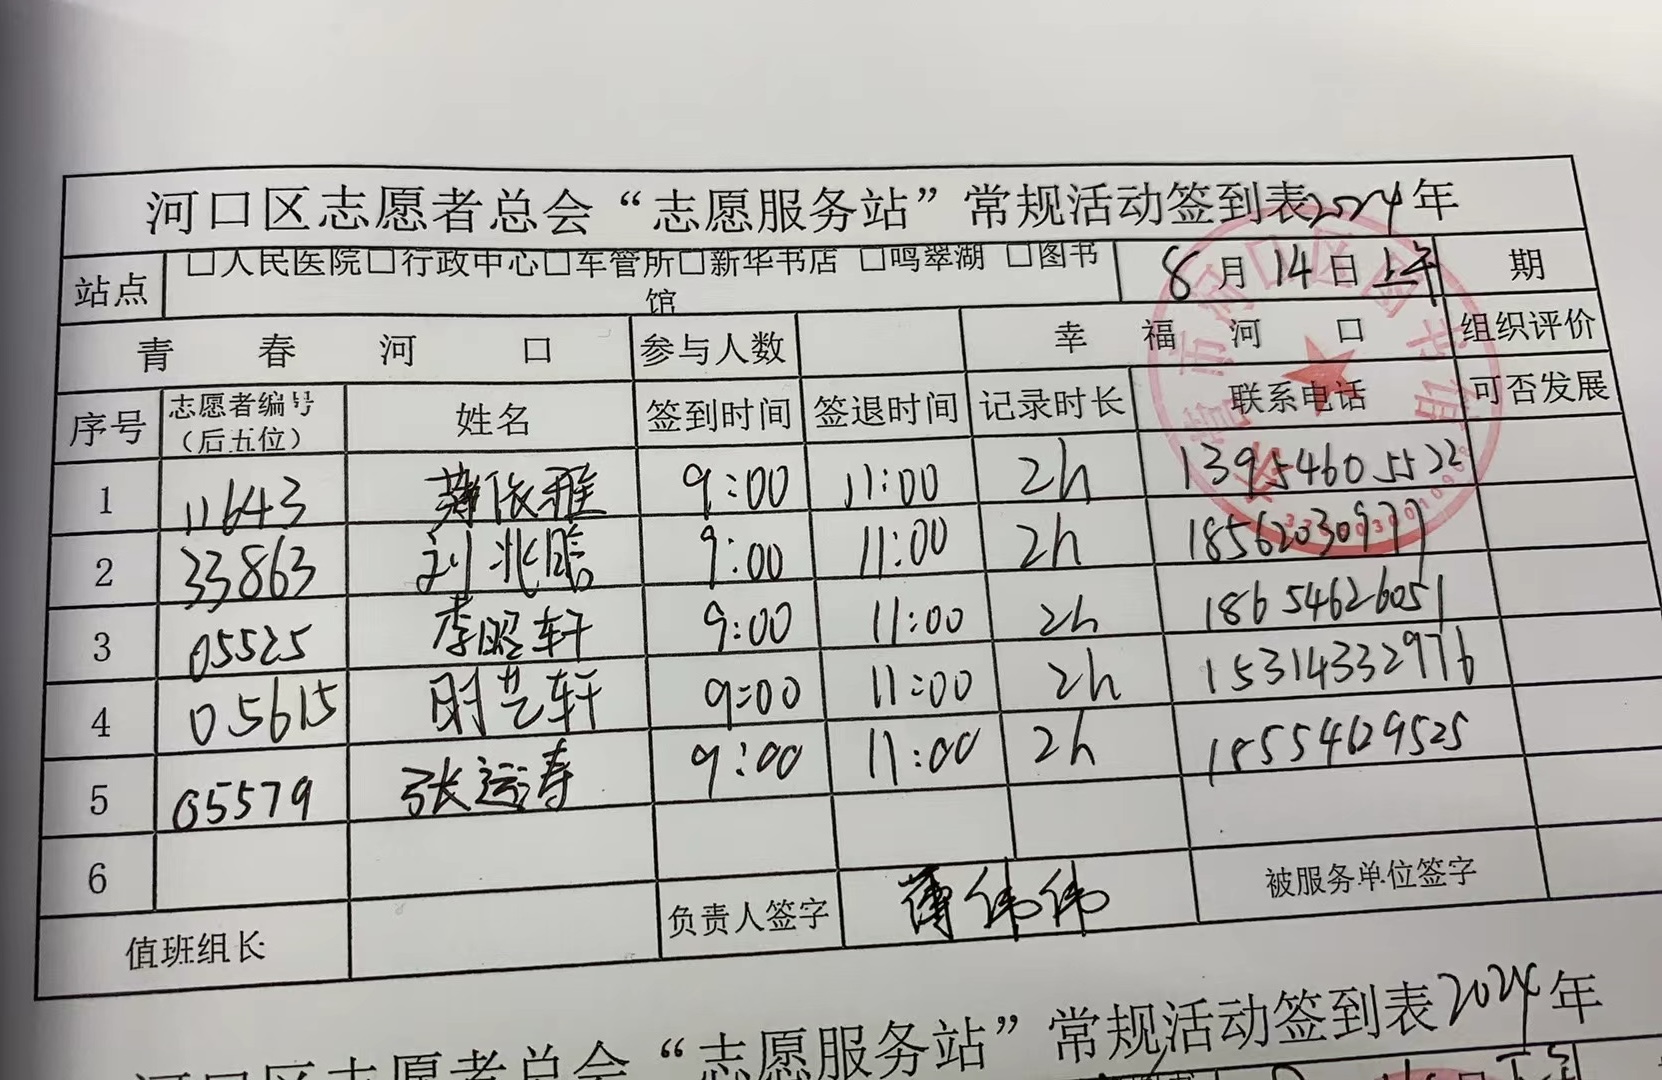 河口区志愿者总会“志愿服务站”常规活动签到表2024年
站点 □人民医院□行政中心□车管所□新华书店 □鸣翠湖 □图书馆 8月14日上午 期
青春河口 参与人数 幸福河口 组织评价
序号 志愿者编号（后五位） 姓名 签到时间 签退时间 记录时长 联系电话 可否发展
1 11643 薄依雅 9:00 11:00 2h 13954605522
2 33863 刘兆晗 9:00 11:00 2h 18562030977
3 05525 李昭轩 9:00 11:00 2h 18654626051
4 05615 时艺轩 9:00 11:00 2h 15314332976
5 05579 张运涛 9:00 11:00 2h 18554629525
6
值班组长 负责人签字 薄伟伟 被服务单位签字
河口区志愿者总会“志愿服务站”常规活动签到表2024年